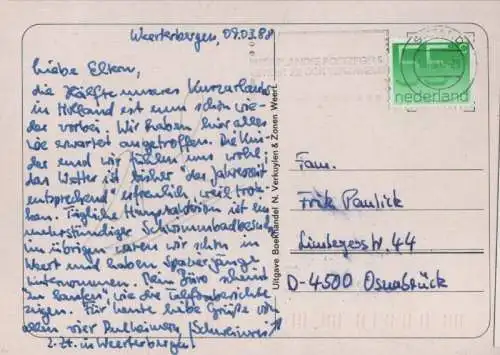 Weerterbergen, 09.03.88
Liebe Eltern,
die Hälfte unseres Kurzurlaubs
in Holland ist nun schon wie-
der vorbei. Wir haben hier alles
wie erwartet angetroffen. Die Kin-
der und wir fühlen uns wohl;
das Wetter ist bisher "der Jahreszeit
entsprechend" erfreulich, weil trok-
ken. Tägliche Hauptattraktion ist ein
stündiger Schwimmbadbesuch
im übrigen waren wir schon in
Weert und haben Spaziergänge
unternommen. Dein Büro scheint
"zu laufen", wie die Telefonberichte
zeigen. Für heute liebe Grüße von
allen vier
z. Zt. in Weerterbergen!
Uitgave Boekhandel N. Verkuylen & Zonen Weert.
nederland
Fam.
Fritz Paulick
44
D-4500 Osnabrück